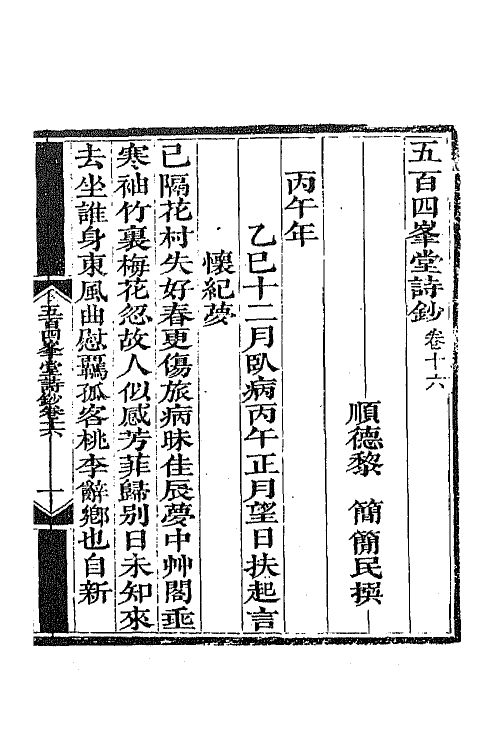 五百四峯堂詩鈔卷十六
順德黎　簡簡民撰
丙午年
乙巳十二月臥病丙午正月望日扶起言
懷紀夢
已隔花村失好春更傷旅病昧佳辰夢中艸閣垂
寒袖竹裏梅花忽故人似感芳菲歸别日未知來
去坐誰身東風曲慰羈孤客桃李辭鄉也自新
五百四峯堂詩鈔卷十六　一